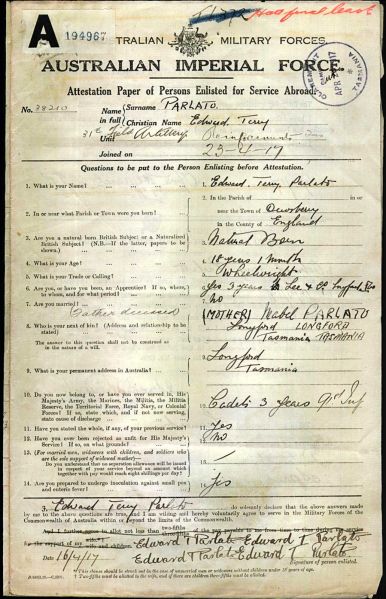 A 194967
AUSTRALIAN MILITARY FORCES.
AUSTRALIAN IMPERIAL FORCE.
CLAREMONT CAMP APR 17 TASMANIA
Attestation Paper of Persons Enlisted for Service Abroad.
No. 38210
Name in full
Surname PARLATO.
Christian Name Edward Terry
31st Field Artillery Reinforcements
Joined on 23-4-17
Questions to be put to the Person Enlisting before Attestation.
1. What is your Name? 1. Edward Terry Parlato
2. In or near what Parish or Town were you born? 2. In the Parish of or
near the Town of Dewsbury
in the County of England
3. Are you a natural born British Subject or a Naturalized
British Subject? (N.B.—If the latter, papers to be
shown). 3. Natural Born
4. What is your Age? 4. 18 years 1 month
5. What is your Trade or Calling? 5. Wheelwright
6. Are you, or have you been, an Apprentice? If so, where,
to whom, and for what period? 6. Yes 3 years Lee & Co Longford
7. Are you married? 7. No
Father deceased
8. Who is your next of kin? (Address and relationship to be
stated) 8. (MOTHER) Mabel PARLATO
Longford LONGFORD
Tasmania TASMANIA
The answer to this question shall not be construed as
in the nature of a will.
9. What is your permanent address in Australia? 9. Longford
Tasmania
10. Do you now belong to, or have you ever served in, His
Majesty's Army, the Marines, the Militia, the Militia
Reserve, the Territorial Force, Royal Navy, or Colonial
Forces? If so, state which, and if not now serving,
state cause of discharge 10. Cadets 3 years 91st Inf
11. Have you stated the whole, if any, of your previous service? 11. Yes
12. Have you ever been rejected as unfit for His Majesty's
Service? If so, on what grounds? 12. No
13. (For married men, widowers with children, and soldiers who
are the sole support of widowed mother)—
Do you understand that no separation allowance will be issued
in respect of your service beyond an amount which
together with pay would reach eight shillings per day? 13.
14. Are you prepared to undergo inoculation against small pox
and enteric fever? 14. Yes
I, Edward Terry Parlato do solemnly declare that the above answers
made by me to the above questions are true, and I am willing and hereby voluntarily agree to serve in the Military Forces of the
Commonwealth of Australia within or beyond the limits of the Commonwealth.
And I further agree to allot not less than two-fifths of the pay payable to me from time to time during my service
for the support of my wife and children. Edward T Parlato Edward T Parlato
Edward T Parlato Edward T Parlato
Date 16/4/17
Signature of person enlisted.